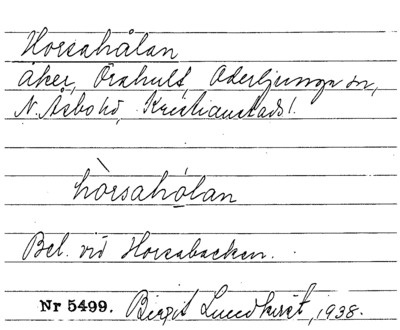 Horsahålan
åker, Örahult, Oderljunga sn,
N. Åsbo hd, Kristianstads l.
hòrsaho̲lan
Bel. vid Horsabacken.
Nr 5499. Birgit Lundkvist, 1938.